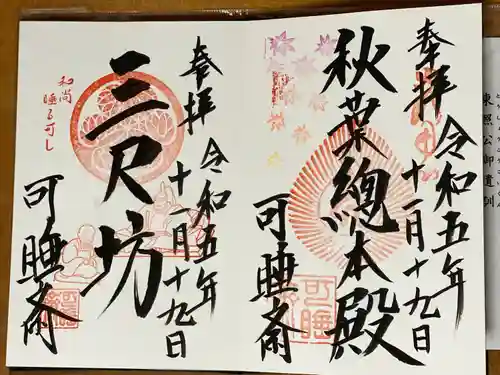 奉拝
秋葉總本殿
令和五年
十一月十九日
可睡斎
可睡
奉拝
三尺坊
令和五年
十一月十九日
可睡斎
和尚
睡る可し
東照公御遺訓